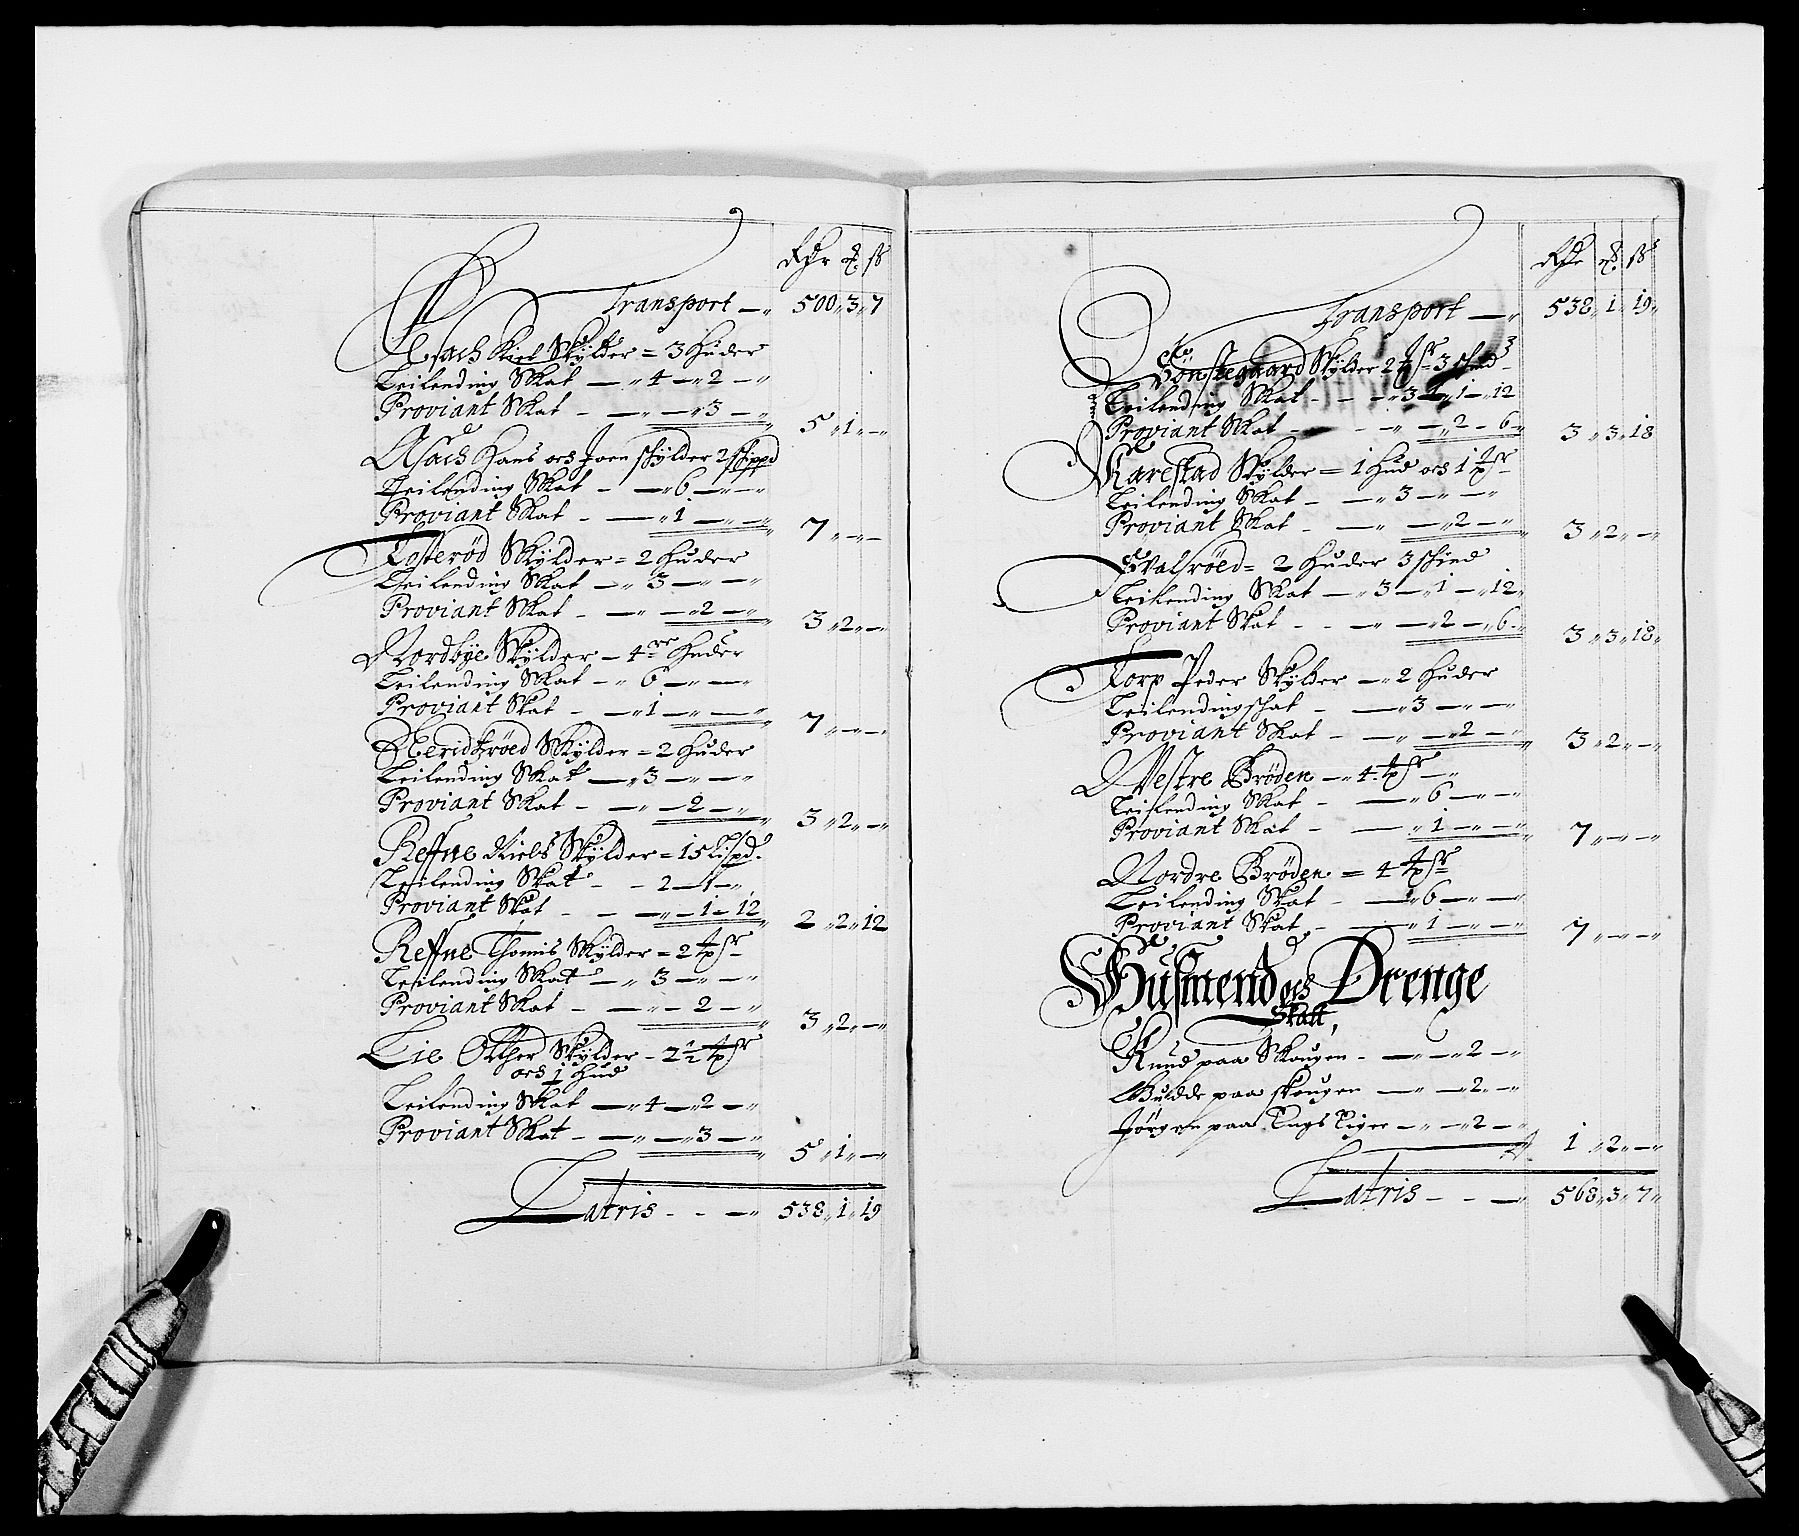 Rdr ȣ ß
Transport — 500 „ 3 „ 7
Asach Kiel Skylder = 3 Huder
Leilending Skat — „ 4 — „ 2 — „
Proviant Skat - — „ — „ 3 — „ 5 „ 1 „ —
Asach Hans och Joen skylder 2 skippd
Leilending Skat - — „ 6 — „ — „
Proviant Skat - — „ 1 — „ — „ 7 „ — „ —
Tosterød Skylder = 2 Huder
Leilending Skat — „ 3 — „ — „
Proviant Skat - — „ — „ 2 — „ 3 „ 2 „ —
Nordbye Skylder — 4 re Huder
Leilending Skat - „ 6 — „ — „
Proviant Skat - — „ 1 — „ — „ 7 „ — „ —
Skylder = 2 Huder
Leilending Skat — „ 3 — „ — „
Proviant Skat - — „ — 2 — „ 3 „ 2 „ —
Reffne Niels Skylder = 15 Lispd.
Leilending Skat - - 2 — 1 — „
Proviant Skat - — „ — 1 — 12 2 „ 2 „ 12
Reffne Thomis Skylder = 2 tpsr
Leilending Skat — „ 3 — „ — „
Proviant Skat - — „ — 2 — „ 3 „ 2 „ —
Lie Otther Skylder - 2 1/2 tpsr
och 1 Hud
Leilending Skat — „ 4 — „ 2 — „
Proviant Skat - — „ — „ 3 — „ 5 „ 1 „ —
Latris - - — „ 538 „ 1 „ 19
Rdr ȣ ß
Transport — „ 538 „ 1 „ 19 „
Tønstegaard Skylder 2 tpsr 3 skind
Leilending Skat - - - „ 3 — „ 1 — „ 12
Proviant Skat - - - „ — „ 2 - 6 „ 3 „ 3 „ 18
Karlstad Skylder = 1 Hud och 1 tpsr
Leilending Skat - — „ 3 — „ — „
Proviant Skat - — „ — „ 2 — „ 3 „ 2 „ —
Hvalsrøed = 2 Huder 3 skind
Leilending Skat — „ 3 — „ 1 — „ 12 „
Proviant Skat - - — „ — „ 2 — „ 6 „ 3 „ 3 „ 18 „
Torp Peder Skylder — „ 2 Huder
Leilendingskat - — „ 3 — „ — „
Proviant Skat - — „ — „ 2 — „ 3 „ 2 „ —
Westre Brøden — „ 4 tpsr — „
Leilending Skat - — „ 6 — „ — „
Proviant Skat - — „ 1 — „ — „ 7 „ — „ —
Nordre Brøden = 4 tpsr
Leilending Skat - — „ 6 — „ — „
Proviant Skat - — „ 1 — „ — „ 7 „ — „ —
Husmend och Drenge
Skatt,
Knud paa Skougen - — „ — „ 2 — „
Gulde paa skougen — „ — „ 2 — „
Jørgen paa — „ — „ 2 — „ 1 „ 2 „ —
Latris - - — „ 568 „ 3 „ 7 „